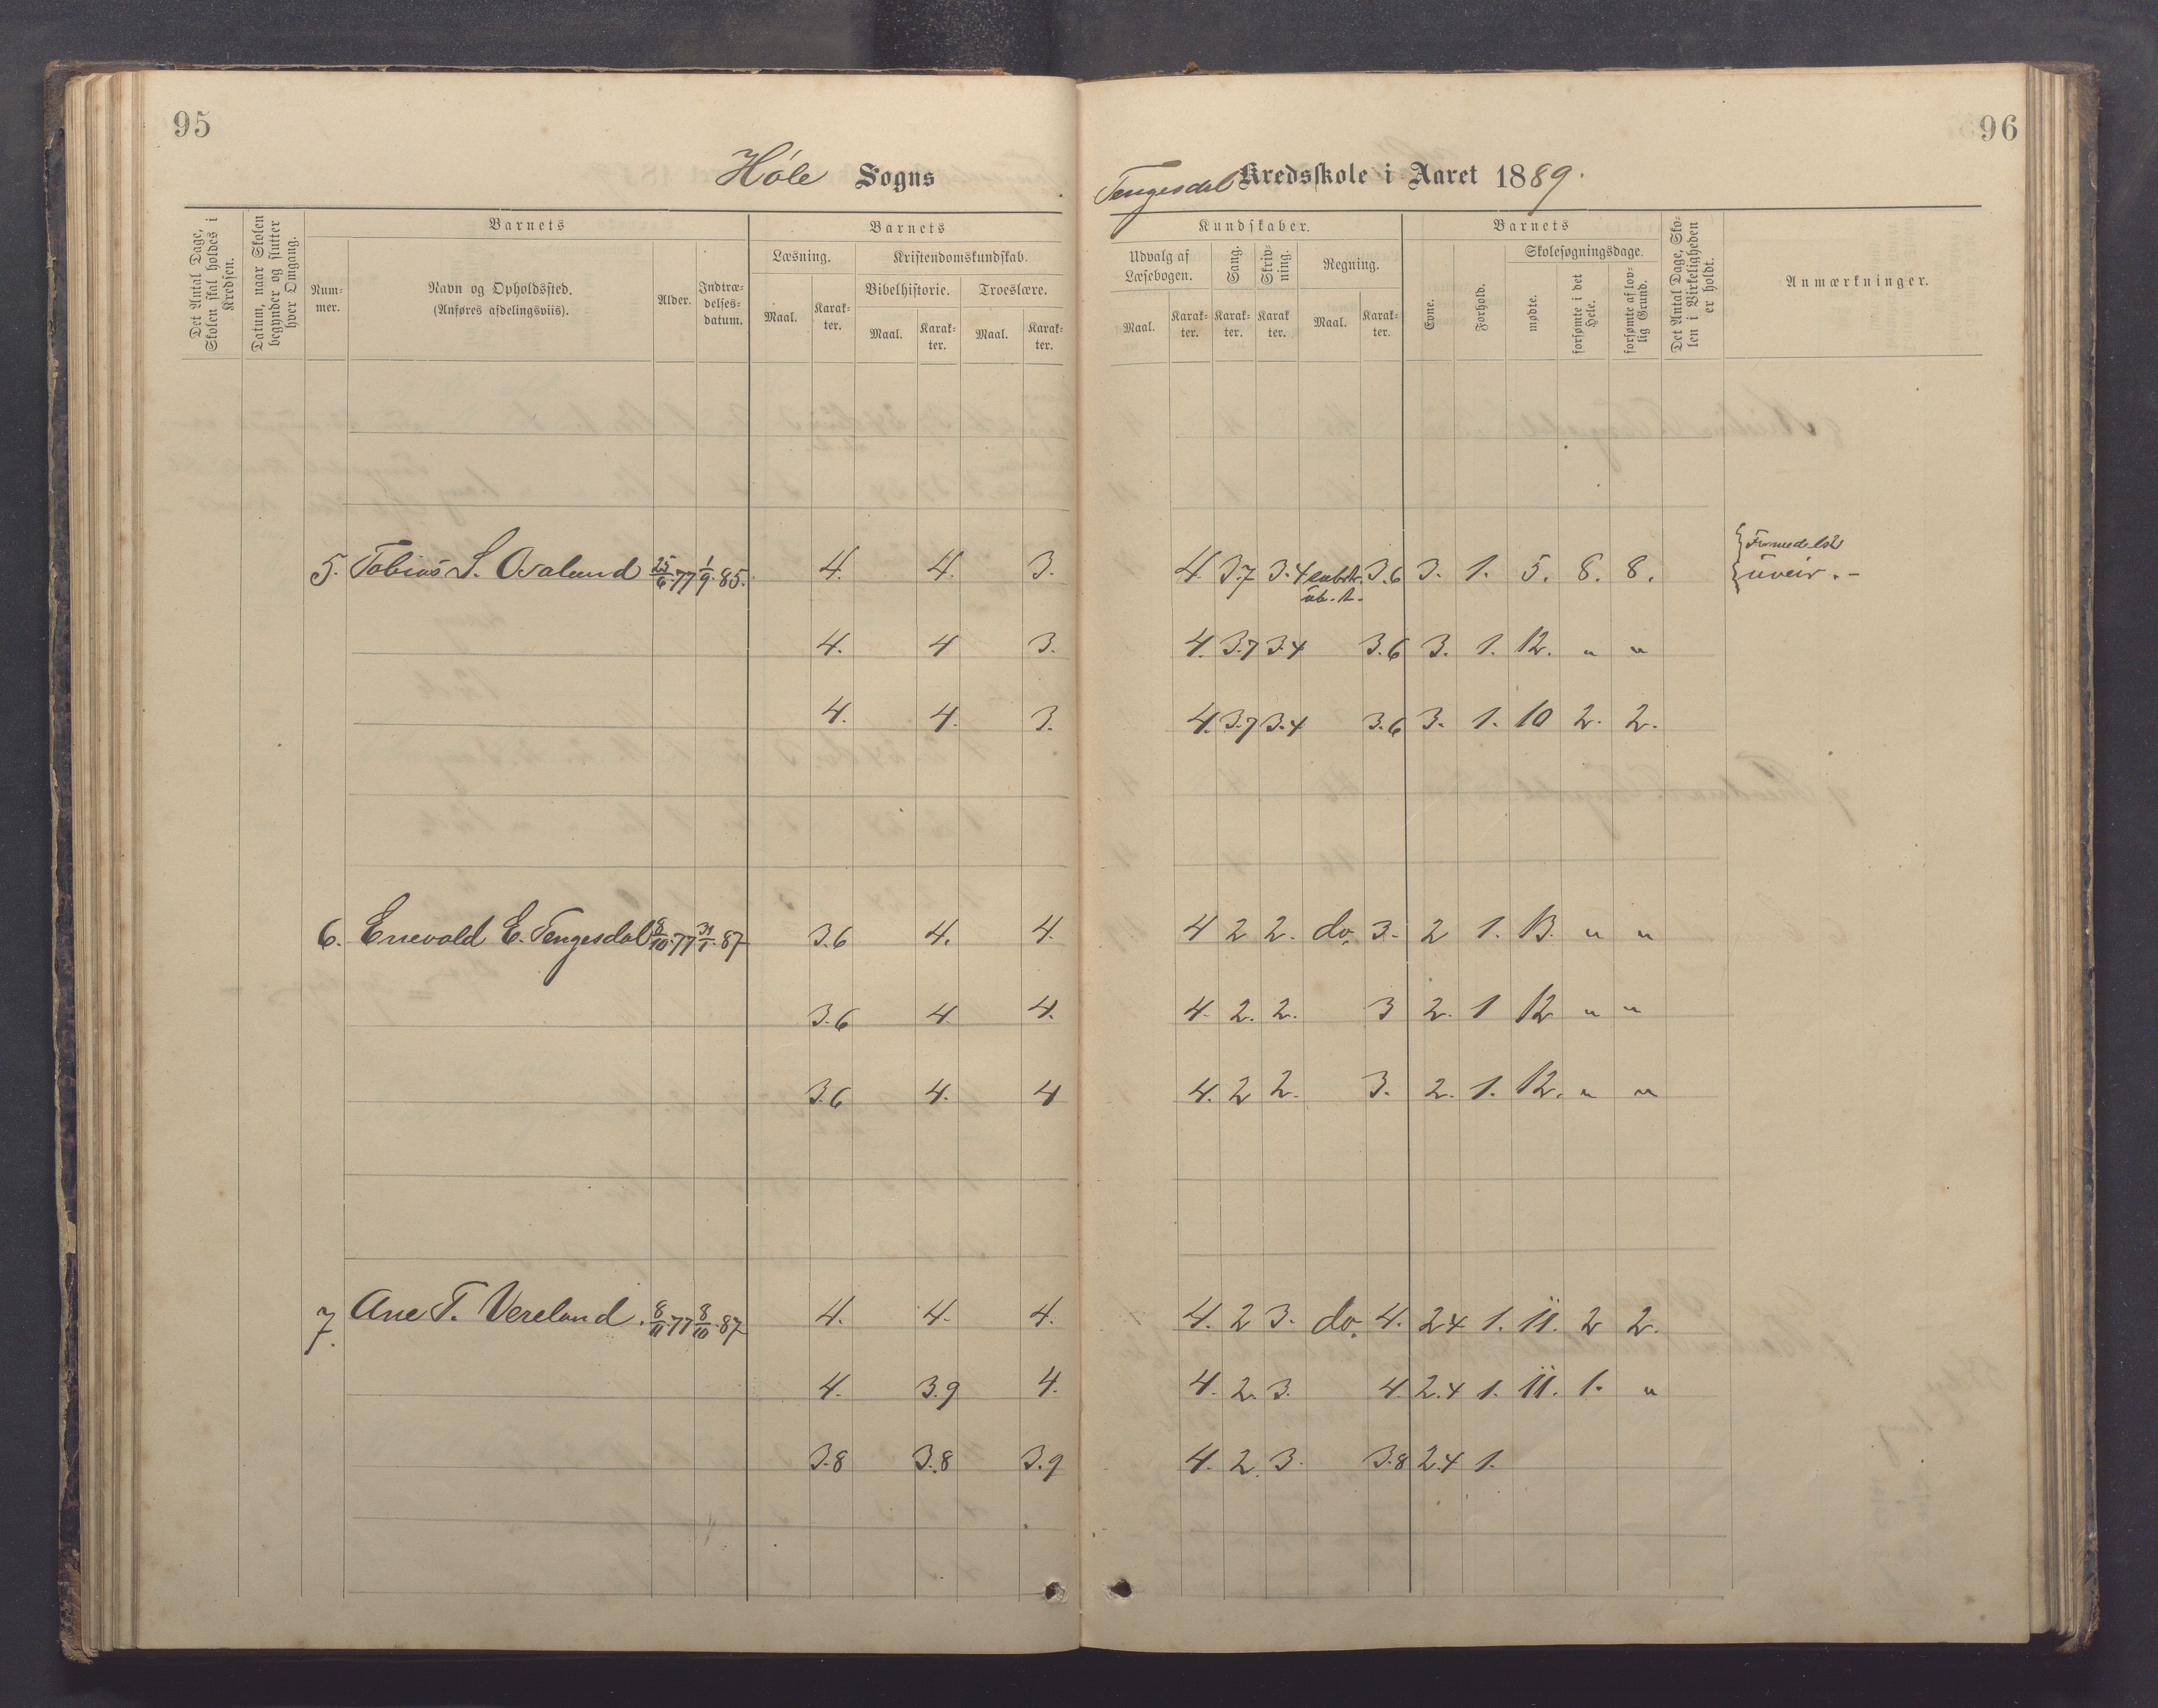 95
96
Höle Sogns
Tengesdal Kredsskole i Aaret 1889.
Det Antal Dage, Skolen skal holdes i Kredsen.
Datum, naar Skolen begynder og slutter hver Omgang.
Barnets
Num-
mer.
Navn og Opholdssted.
(Anføres afdelingsviis).
Alder.
Indtræ-
delses-
datum.
Barnets
Læsning.
Maal.
Karak-
ter.
Kristendomskundskab.
Bibelhistorie.
Maal.
Karak-
ter.
Troeslære.
Maal.
Karak-
ter.
Kundskaber.
Udvalg af
Læsebogen.
Maal.
Karak-
ter.
Sang.
Karak-
ter.
Skriv-
ning.
Karak
ter.
Regning.
Maal.
Karak-
ter.
Barnets
Evne.
Forhold.
Skolesøgningsdage.
mødte.
forsømte i det Hele.
forsømte af lov-
lig Grund.
Det Antal Dage, Sko-
len i Virkeligheden
er holdt.
Anmærkninger.
5. Tobias S. Osalund 25/6 77 1/9 85. 4. 4. 3. 4. 3.7 3.4 subtr. 3.6 3. 1. 5. 8. 8. Formedelst
ub. t. uveir. -
4. 4 3. 4. 3.7 3.4 3.6 3. 1. 12. " "
4. 4. 3. 4. 3.7 3.4 3.6 3. 1. 10 2. 2.
6. Enevold E. Tengesdal 8/10 77 31/1 87 3.6 4. 4. 4 2 2. do. 3. 2 1. 13. " "
3.6 4. 4. 4. 2. 2. 3 2. 1 12 " "
3.6 4. 4 4. 2 2. 3. 2. 1. 12. " "
7. Ane T. Vereland. 8/11 77 8/10 87 4. 4. 4. 4. 2 3. do. 4. 2.4 1. 11. 2 2.
4. 3.9 4. 4. 2. 3. 4. 2.4 1. 11. 1. "
3.8 3.8 3.9 4. 2. 3. 3.8 2.4 1.